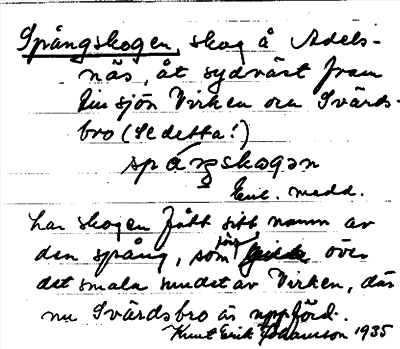 Spångskogen, skog å Adels-
näs, åt sydväst fram
till sjön Virken och Svärds-
bro (Se detta!)
spåŋskogən
Enl. medd.
har skogen fått sitt namn av
den spång, som förr över
det smala sundet av Virken, där
nu Svärdsbro är uppförd.
Knut Erik Johansson 1935